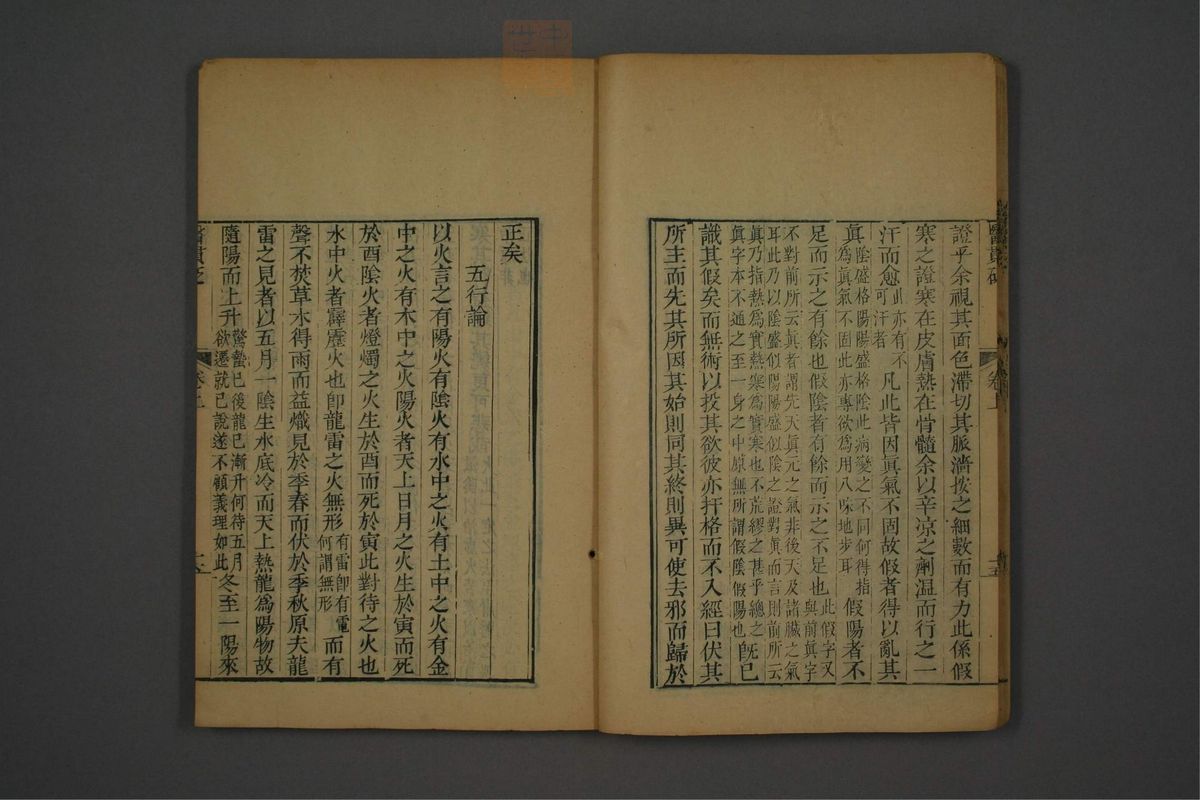 證乎余視其面色滯切其脈濇按之細數而有力此係假
寒之證寒在皮膚熱在骨髓余以辛凉之劑温而行之一
汗而愈此亦有不可汗者凡此皆因眞氣不固故假者得以亂其
眞陰盛格陽陽盛格陰此病變之不同何得指爲眞氣不固此亦專欲爲用八味地步耳假陽者不
足而示之有餘也假陰者有餘而示之不足也此假字又與前眞字
不對前所云眞者謂先天眞元之氣非後天及諸臟之氣
耳此乃以陰盛似陽陽盛似陰之證對眞而言則前所云
眞乃指熱爲實熱寒爲實寒也不荒繆之甚乎總之
眞字本不通之至一身之中原無所謂假陰假陽也旣已
識其假矣而無術以投其欲彼亦扞格而不入經曰伏其
所主而先其所因其始則同其終則異可使去邪而歸於
醫貫砭
卷上
十五
正矣
五行論
以火言之有陽火有陰火有水中之火有土中之火有金
中之火有木中之火陽火者天上日月之火生於寅而死
於酉陰火者燈燭之火生於酉而死於寅此對待之火也
水中火者霹靂火也卽龍雷之火無形有雷卽有電何謂無形而有
聲不焚草木得雨而益熾見於季春而伏於季秋原夫龍
雷之見者以五月一陰生水底冷而天上熱龍爲陽物故
隨陽而上升驚蟄巳後龍已漸升何待五月欲遷就已說遂不顧義理如此冬至一陽來
醫貫砭
卷上